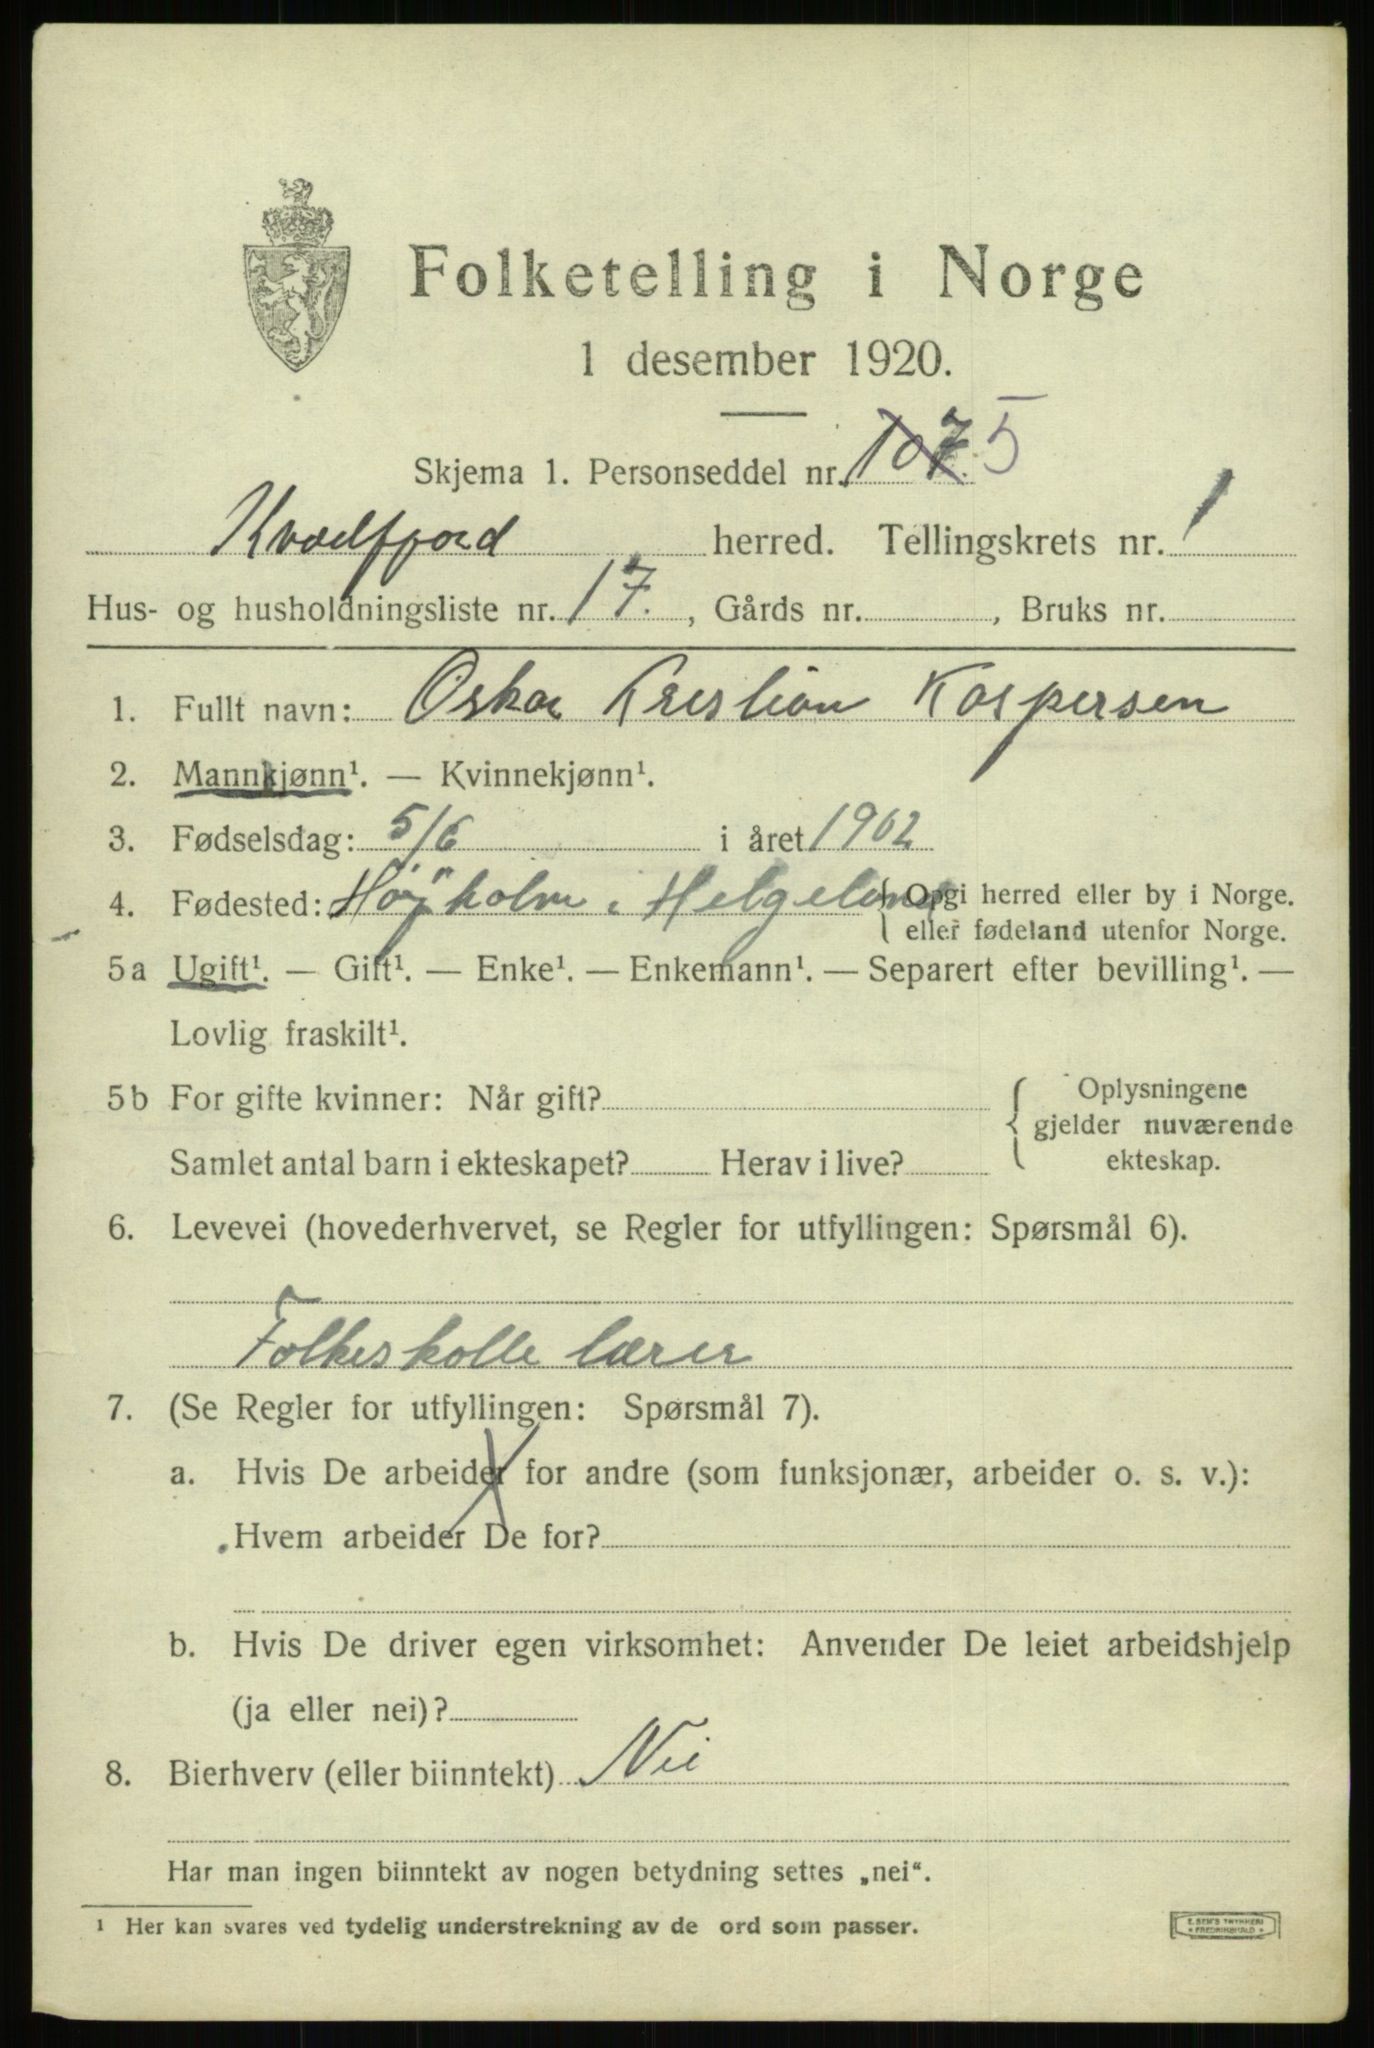 Folketelling i Norge
1 desember 1920.
Skjema 1. Personseddel nr. 107 5
Kvædfjord herred. Tellingskrets nr. 1
Hus- og husholdningsliste nr. 17. , Gårds nr. , Bruks nr.
1. Fullt navn: Oskar Kristian Kaspersen
2. Mannkjønn¹. — Kvinnekjønn¹.
3. Fødselsdag: 5/6 i året 1902
4. Fødested: Høyholm i Helgeland { Opgi herred eller by i Norge.
eller fødeland utenfor Norge.
5a Ugift¹. — Gift¹. — Enke¹. — Enkemann¹. — Separert efter bevilling¹. —
Lovlig fraskilt¹.
5b For gifte kvinner: Når gift?
Samlet antal barn i ekteskapet? Herav i live?
{ Oplysningene
gjelder nuværende
ekteskap.
6. Levevei (hovederhvervet, se Regler for utfyllingen: Spørsmål 6).
Folkeskolle lærer
7. (Se Regler for utfyllingen: Spørsmål 7).
a. Hvis De arbeider for andre (som funksjonær, arbeider o. s. v.):
Hvem arbeider De for?
b. Hvis De driver egen virksomhet: Anvender De leiet arbeidshjelp
(ja eller nei)?
8. Bierhverv (eller biinntekt) Nei
Har man ingen biinntekt av nogen betydning settes „nei“.
¹ Her kan svares ved tydelig understrekning av de ord som passer.
E. SEM'S TRYKKERI
• FREDRIKSHALD •